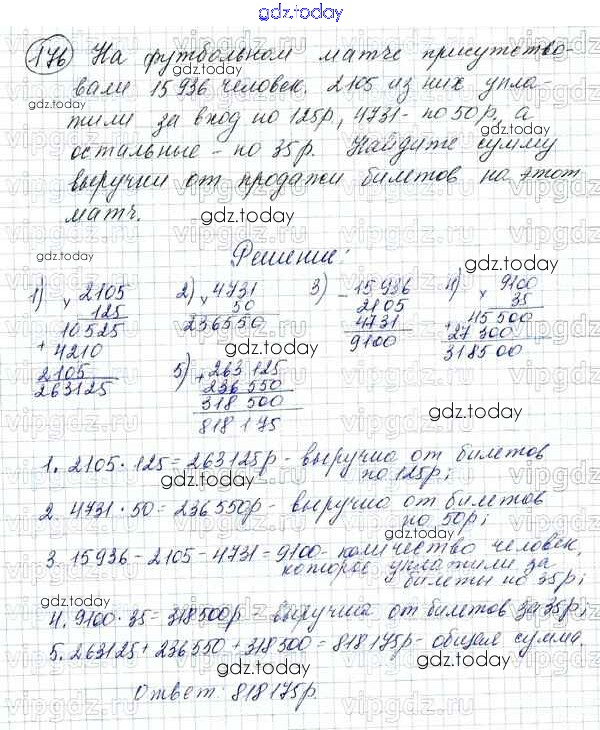 gdz.today
176 На футбольном матче присутство-
вали 15936 человек. 2105 из них упла-
тили за вход по 125р, 4731 - по 50р., а
остальные - по 35р. Найдите сумму
выручки от продажи билетов на этот
матч.
Решение:
1) × 2105
125
10525
+ 4210
2105
263125
2) × 4731
50
236550
3) - 15936
2105
4731
9100
4) × 9100
35
45500
+ 27300
318500
5) + 263125
236550
318500
818175
1. 2105 · 125 = 263125р - выручка от билетов
по 125р;
2. 4731 · 50 = 236550р - выручка от билетов
по 50р;
3. 15936 - 2105 - 4731 = 9100 - количество человек,
которое уплатили за
билеты по 35р;
4. 9100 · 35 = 318500р выручка от билетов за 35р;
5. 263125 + 236550 + 318500 = 818175р - общая сумма.
Ответ: 818175р.